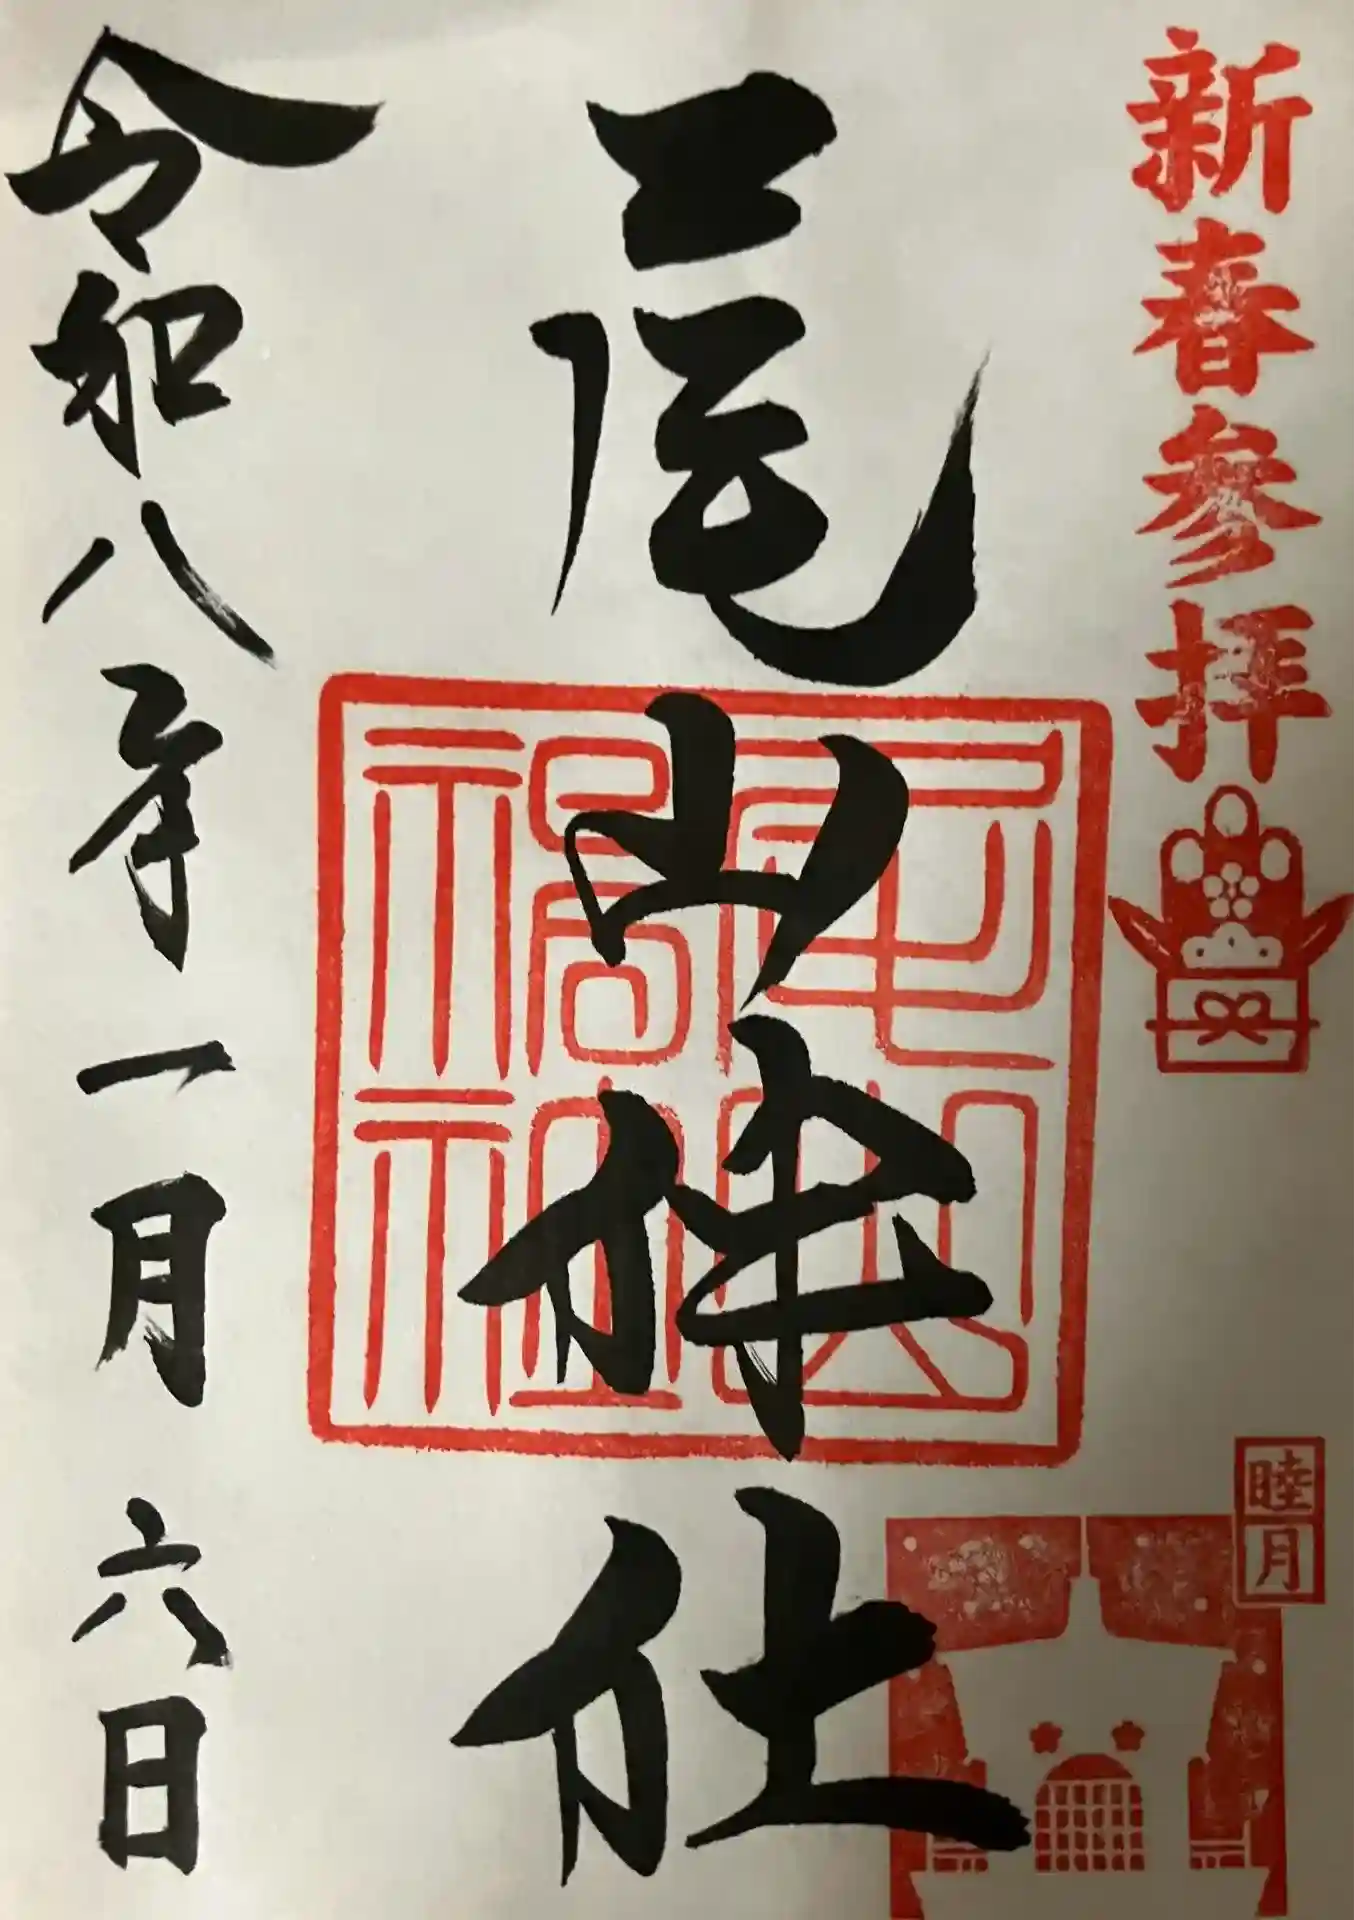 新春参拝
睦月
尾山神社
尾山神社
令和八年一月六日